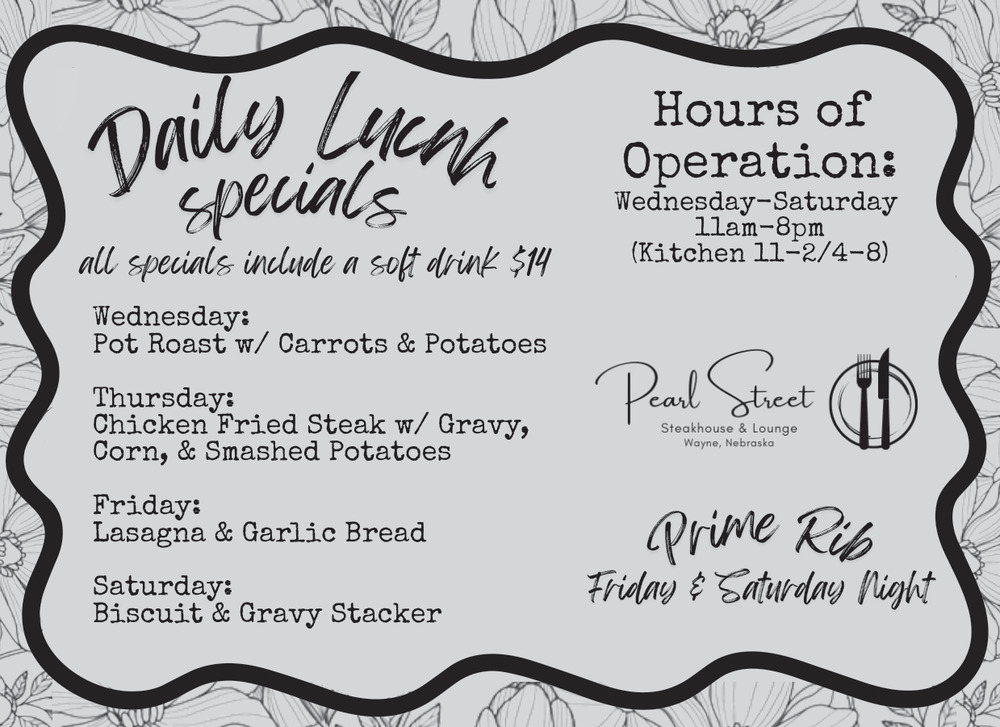 Daily Lucnh
specials
all specials include a soft drink $14
Wednesday:
Pot Roast w/ Carrots & Potatoes
Thursday:
Chicken Fried Steak w/ Gravy,
Corn, & Smashed Potatoes
Friday:
Lasagna & Garlic Bread
Saturday:
Biscuit & Gravy Stacker
Hours of
Operation:
Wednesday-Saturday
11am-8pm
(Kitchen 11-2/4-8)
Pearl Street
Steakhouse & Lounge
Wayne, Nebraska
Prime Rib
Friday & Saturday Night